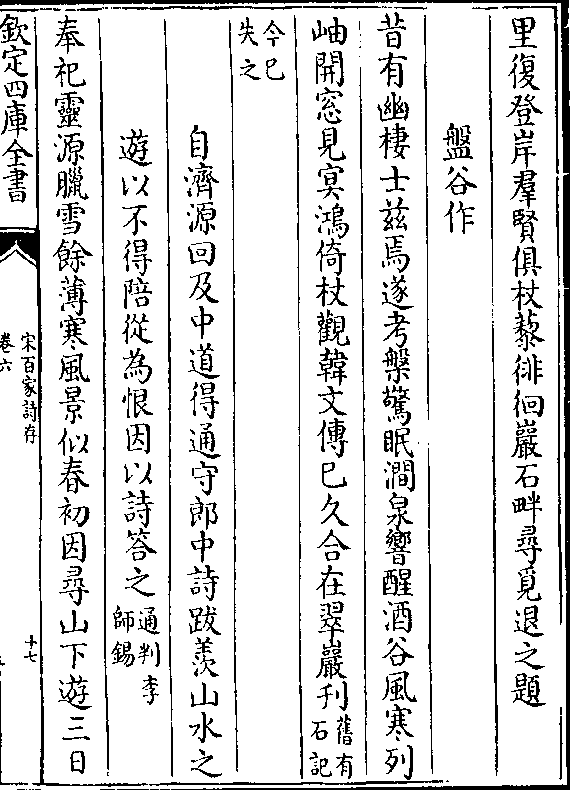 里復登岸羣賢俱杖藜徘徊巖石畔尋覓退之題
盤谷作
昔有幽棲士兹焉遂考槃驚眠澗泉響醒酒谷風寒列
岫開窓見冥鴻倚杖觀韓文傳已久合在翠巖刋舊有石記
今已失之
自濟源回及中道得通守郎中詩跋羨山水之
遊以不得陪從為恨因以詩答之通判李師錫
奉祀靈源臘雪餘薄寒風景似春初因尋山下遊三日
欽定四庫全書
宋百家詩存
卷六
十七